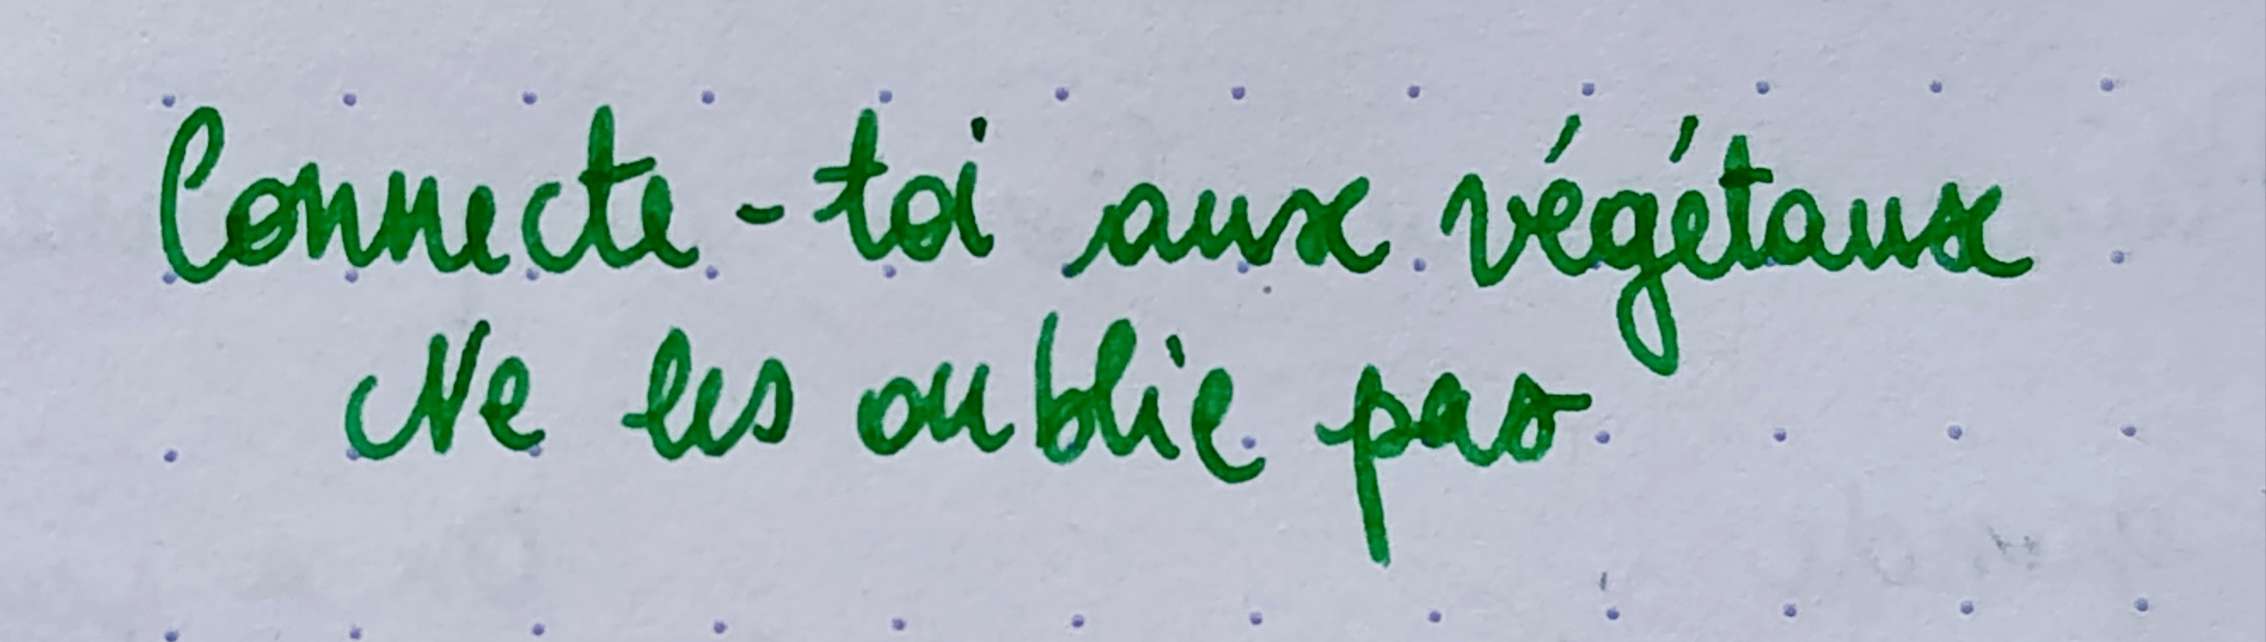 Connecte-toi aux végétaux
Ne les oublie pas